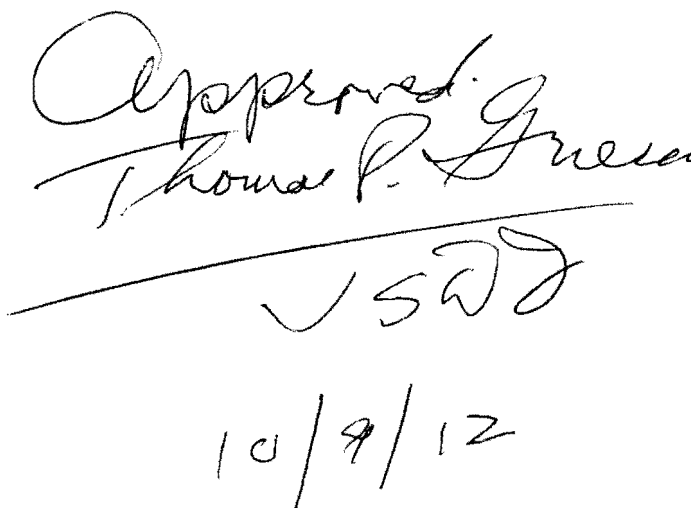 Approved.
Thomas P. Griesa
USDJ
10/9/12